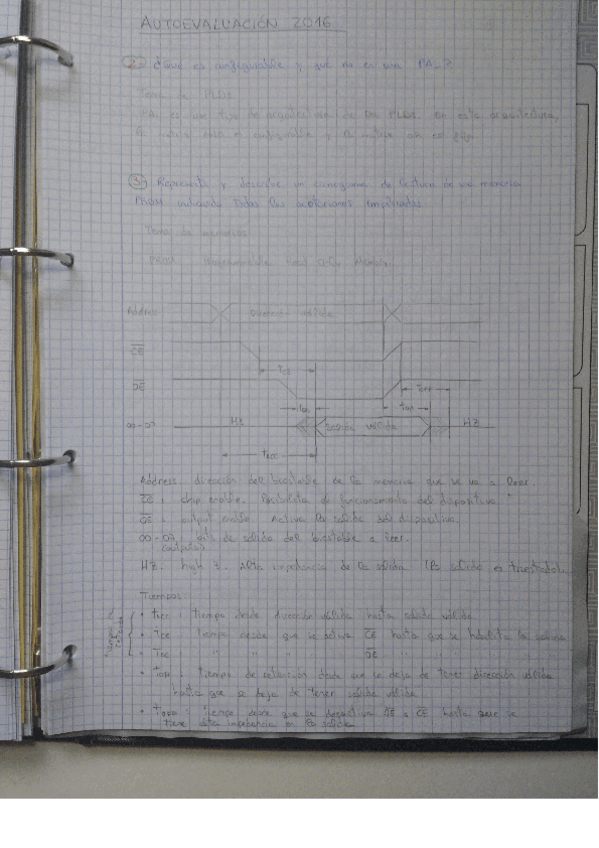 AUTOEVALUACIÓN 2016
② ¿Qué es configurable y qué no en una PAL?
Tema de PLDs
PAL es un tipo de arquitectura de los PLDs. En esta arquitectura,
③ Representa y describe un cronograma de lectura de una memoria
PROM indicando todos los acrónimos empleados.
Tema de memorias
PROM Programmable Read Only Memory
Address Dirección válida
CE
tCE
OE
tOFF
tOE tOH
O0-O7 HZ Salida válida HZ
tACC
Address: dirección del biestable de la memoria que se va a leer.
CE: chip enable. Posibilita el funcionamiento del dispositivo.
OE: output enable. Activa la salida del dispositivo.
O0-O7: bits de salida del biestable a leer.
(outputs)
HZ: high Z. Alta impedancia de la salida (la salida es triestado).
Tiempos
• tACC: tiempo desde dirección válida hasta salida válida
• tCE: tiempo desde que se activa CE hasta que se habilita la salida
• tOE: " " " " OE " "
• tOH: tiempo de retención desde que se deja de tener dirección válida
hasta que se deja de tener salida válida
• tOFF: tiempo desde que se desactiva OE o CE hasta que se
tiene alta impedancia en la salida